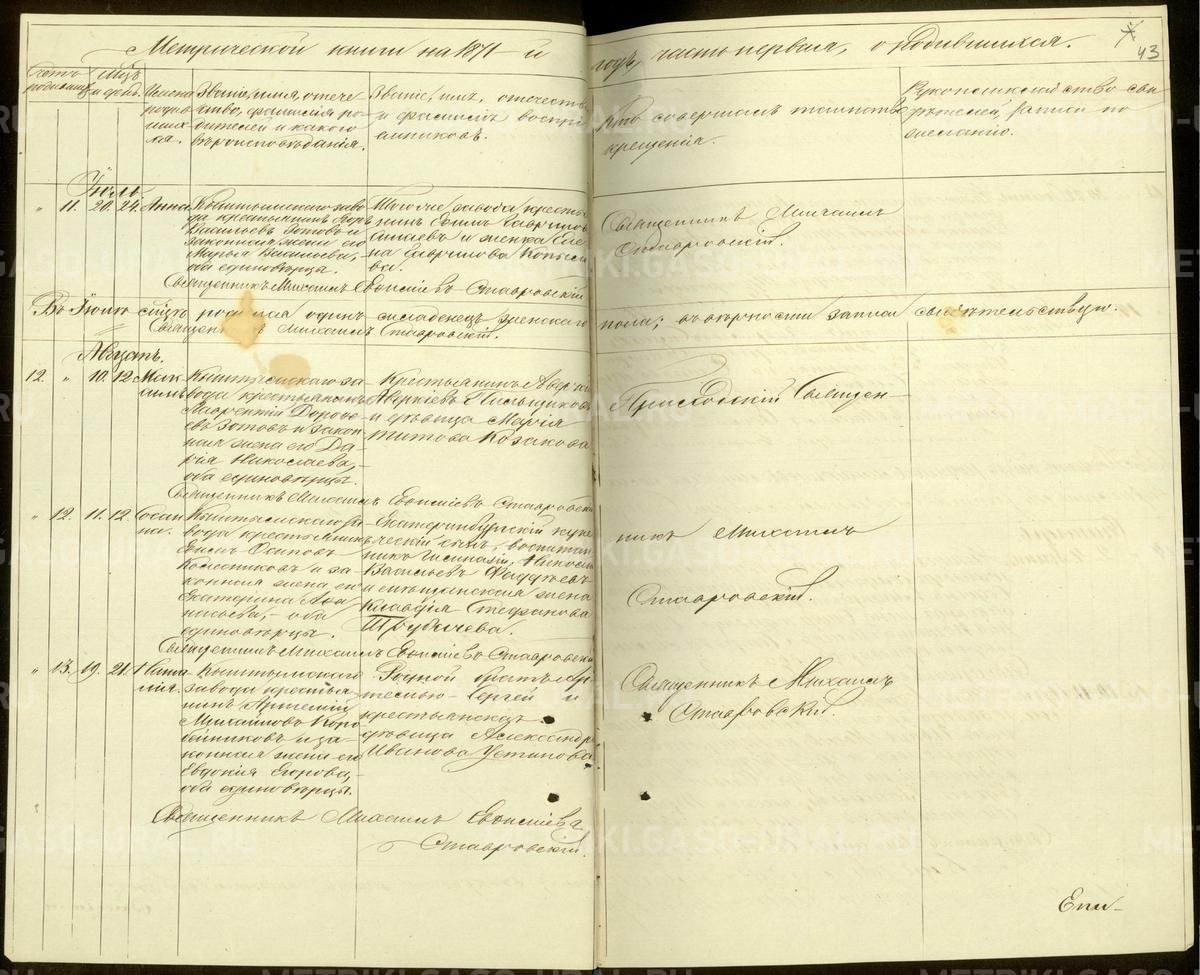 Метрической книги на 1871-й годъ, часть первая, о родившихся.
43
Счетъ родившихся
Мѣсяцъ и день
Имена родившихся.
Званіе, имя, отчество, фамилія родителей и какого вѣроисповѣданія.
Званіе, имя, отчество и фамилія воспріемниковъ.
Кто совершалъ таинство крещенія.
Рукоприкладство свидѣтелей записи по желанію.
Іюль.
„ 11. 20. 24. Анна
Кыштымскаго заво-
да крестьянинъ
Васильевъ Зотовъ и
законная жена его
Марья Васильева,
оба единовѣрцы.
завода кресть-
янинъ Ефимъ Гаврилов
и женка Еле-
на Гаврилова
Священникъ Михаилъ
Ставровскій.
Священникъ Михаилъ Евфиміевъ Ставровскій
Въ Іюлѣ мѣсяцѣ родился одинъ младенецъ женскаго пола; въ вѣрности записи свидѣтельствую.
Священникъ Михаилъ Ставровскій.
Августъ.
12. „ 10. 12. Мак-
симъ
Кыштымскаго за-
вода крестьянинъ
Лаврентій Дороѳе-
евъ Зотовъ и закон-
ная жена его Да-
рія Николаева,
оба единовѣрцы.
Крестьянинъ
и дѣвица Марія
Титова Козакова
Приходскій Священ-
Священникъ Михаилъ Евфиміевъ Ставровскій
„ 12. 11. 12.
Кыштымскаго за-
вода крестьянинъ
Ефимъ Осиповъ
и за-
конная жена его
Екатерина
оба
единовѣрцы.
Екатеринбургскій купе-
ческій сынъ, воспитан-
никъ гимназіи, Николай
Васильевъ
и мѣщанская жена
Клавдія Стефанова
Трубичева.
никъ Михаилъ
Ставровскій.
Священникъ Михаилъ Евфиміевъ Ставровскій
„ 13. 19. 21. Ната-
лія.
Кыштымскаго
завода крестья-
нинъ Артемій
Михайловъ Коро-
бейниковъ и за-
конная жена его
Евдокія Егорова,
оба единовѣрцы.
Родной братъ Ар-
темью Сергей и
крестьянская
дѣвица Александра
Иванова Устинова
Священникъ Михаилъ
Ставровскій.
Священникъ Михаилъ Евфиміевъ
Ставровскій.
Епи-
METRIKI.GASO-URAL.RU